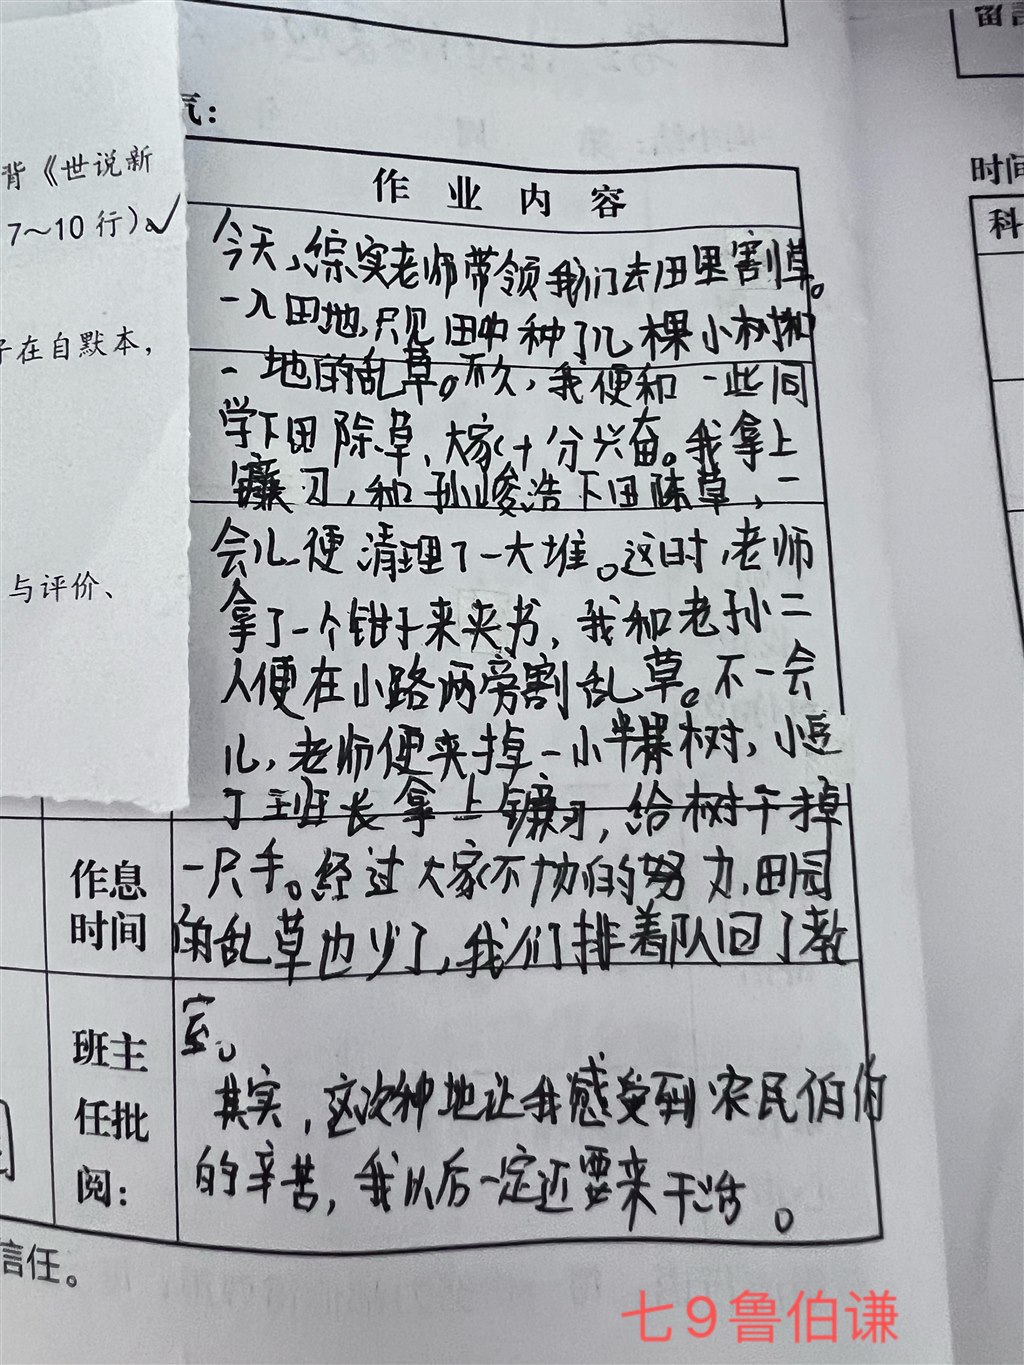 留言
气：
时间
背《世说新
作业内容
7～10行）。
科
今天，综实老师带领我们去田里割草。
一入田地，只见田中种了几棵小树和
子在自默本，
一地的乱草。不久，我便和一些同
学下田除草，大家十分兴奋。我拿上
镰刀，和孙峻浩下田除草，一
会儿便清理了一大堆。这时，老师
与评价、
拿了一个钳子来夹书，我和老孙二
人便在小路两旁割乱草。不一会
儿，老师便夹掉一小半棵树，小
了班长拿上镰刀，给树干掉
作息
时间
一只手。经过大家不协的努力，田园
的乱草也少了，我们排着队回了教
室。
班主
任批
阅：
其实，这次种地让我感受到农民伯伯
的辛苦，我以后一定还要来干活。
信任。
七9鲁伯谦